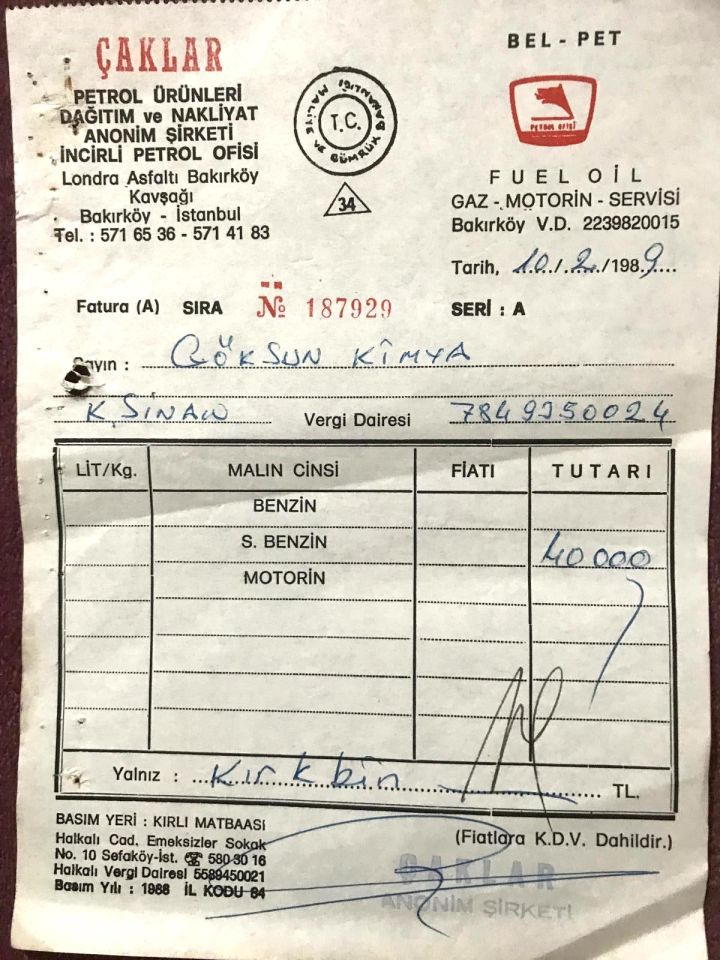 ÇAKLAR
PETROL ÜRÜNLERİ
DAĞITIM ve NAKLİYAT
ANONİM ŞİRKETİ
İNCİRLİ PETROL OFİSİ
Londra Asfaltı Bakırköy
Kavşağı
Bakırköy - İstanbul
Tel. : 571 65 36 - 571 41 83
T.C.
MALİYE VE GÜMRÜK BAKANLIĞI
34
BEL - PET
PETROL OFİSİ
FUEL OIL
GAZ - MOTORİN - SERVİSİ
Bakırköy V.D. 2239820015
Tarih, 10/2/1989
Fatura (A) SIRA № 187929 SERİ : A
Sayın : GÖKSUN KİMYA
K.SİNAN Vergi Dairesi 7849350024
LİT/Kg. MALIN CİNSİ FİATI TUTARI
BENZİN
S. BENZİN 40000
MOTORİN
Yalnız : Kırkbin TL.
BASIM YERİ : KIRLI MATBAASI
Halkalı Cad. Emeksizler Sokak
No. 10 Sefaköy-İst. ☎ 580 30 16
Halkalı Vergi Dairesi 5589450021
Basım Yılı : 1988 İL KODU 34
(Fiatlara K.D.V. Dahildir.)
ÇAKLAR
ANONİM ŞİRKETİ